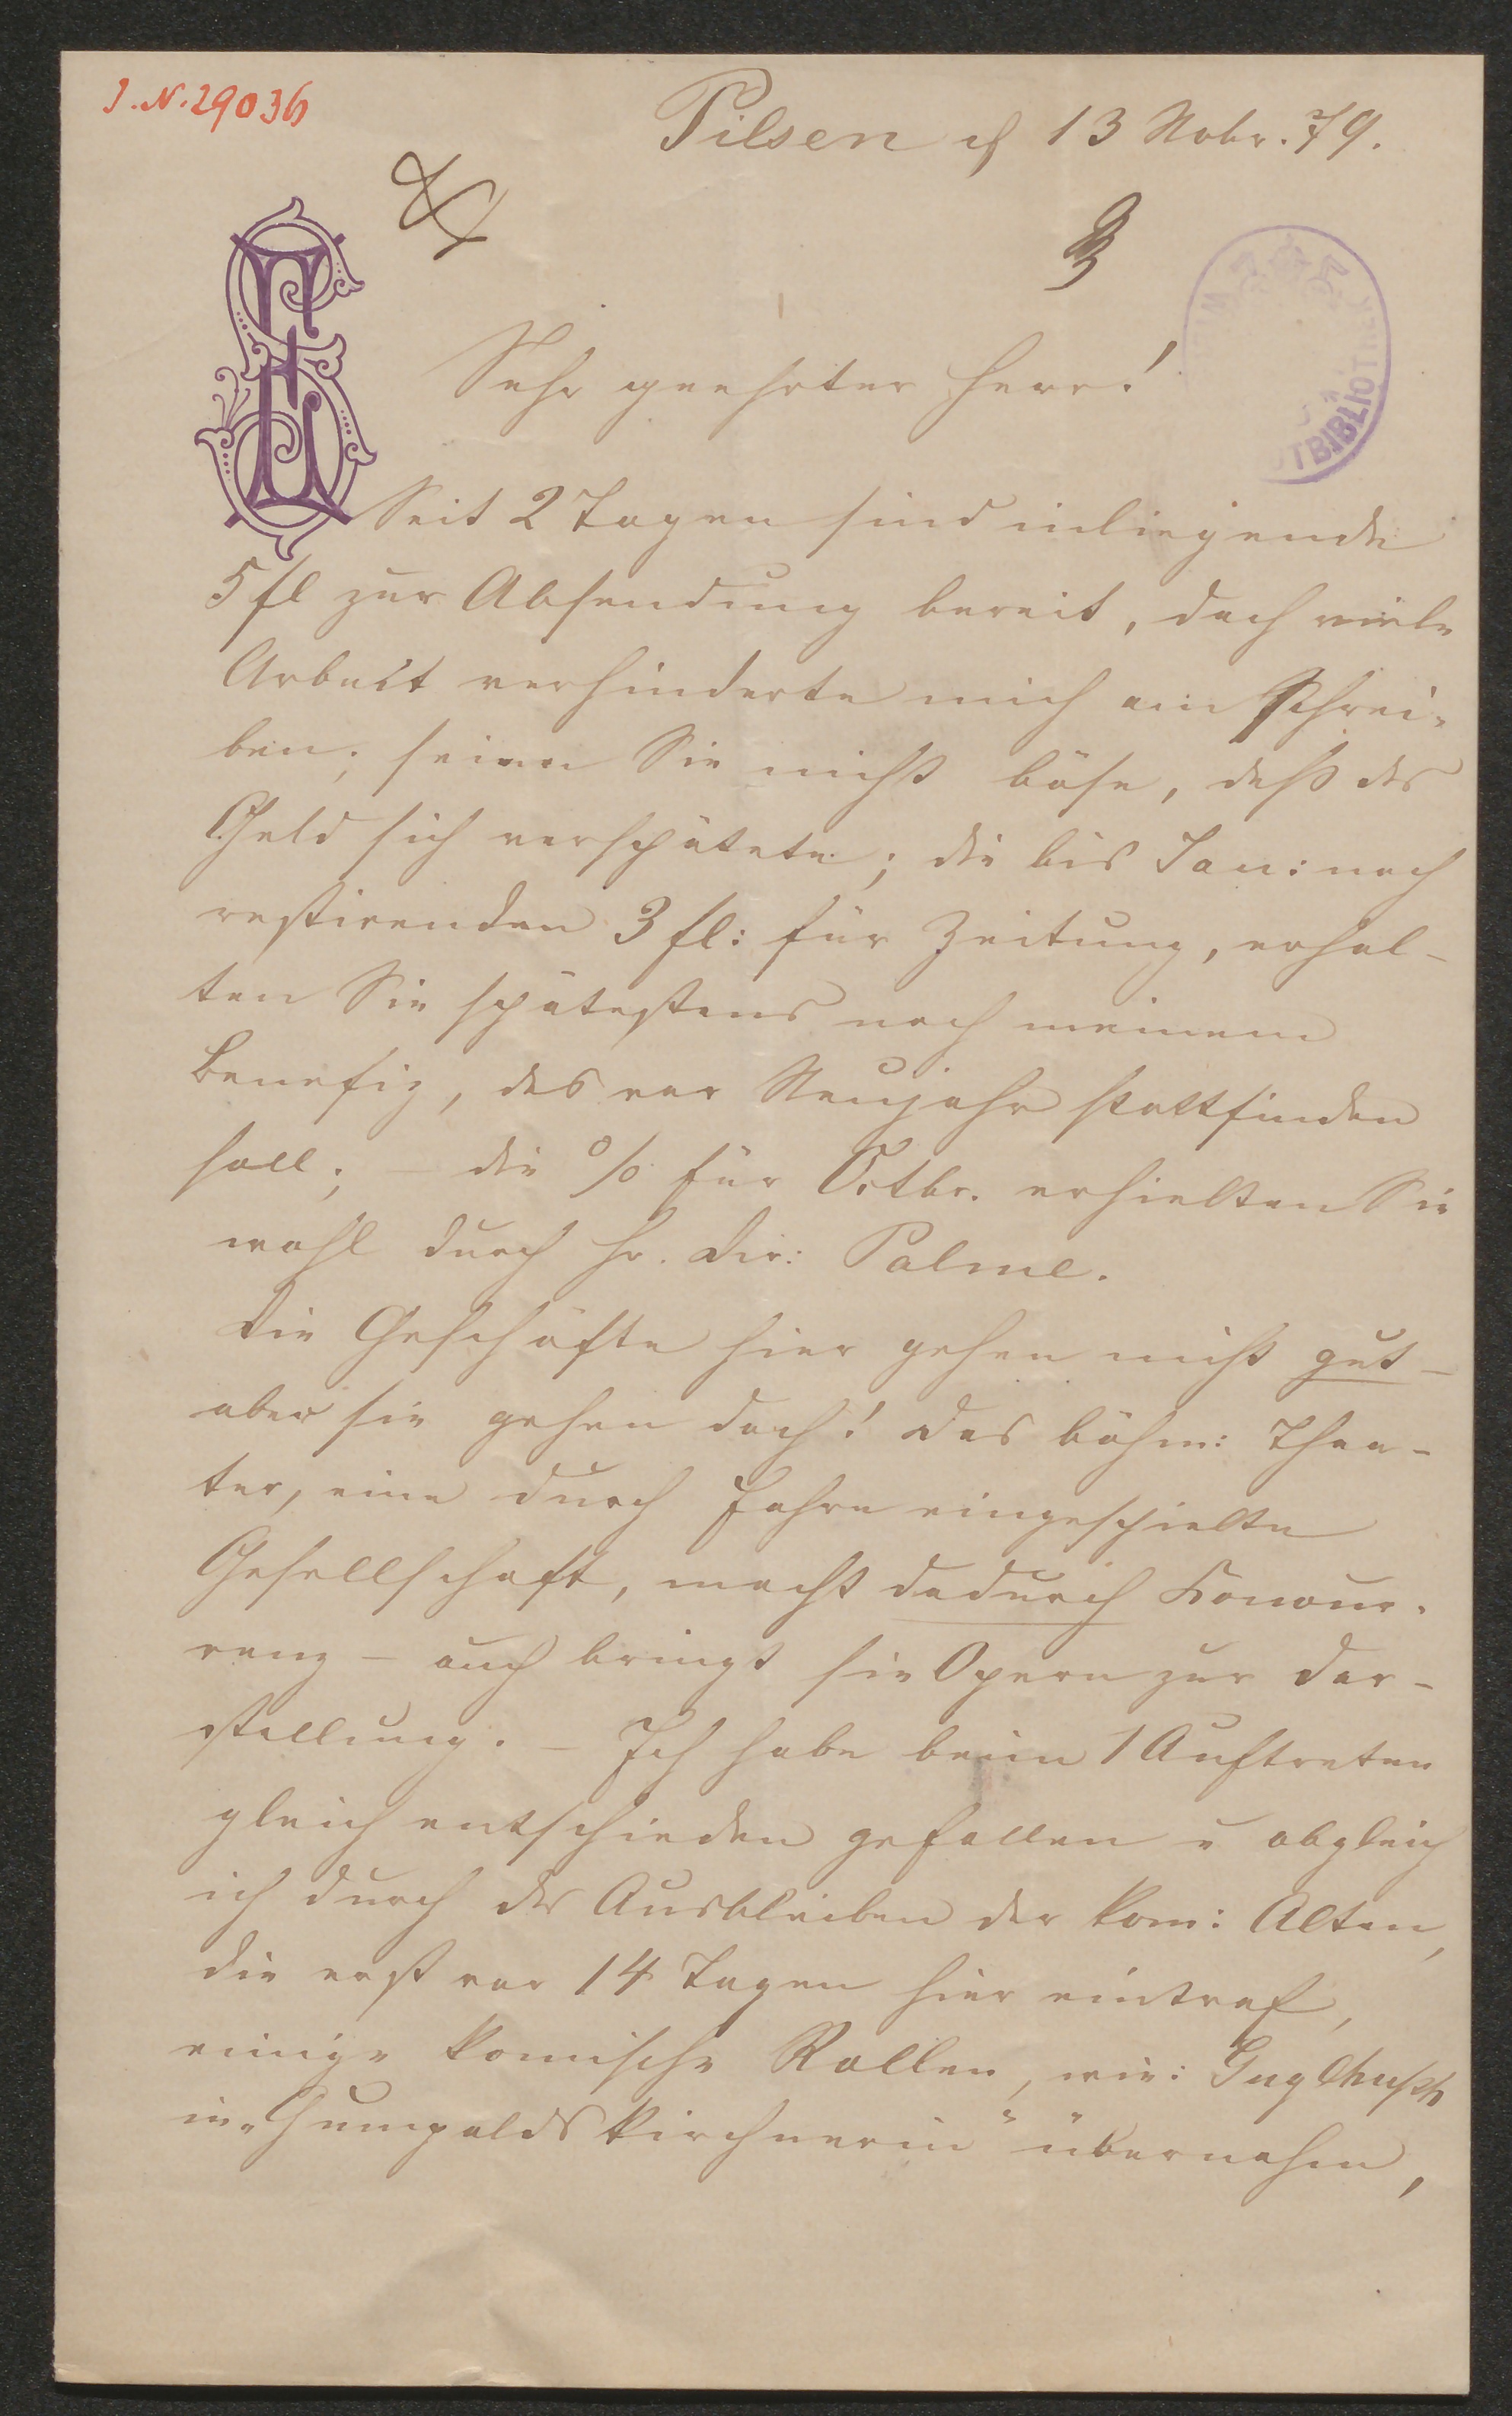 I.N. 29036
Pilsen d 13 Nobr. 79.
Sehr geehrter Herr!
Seit 2 Tagen sind inliegende
5 fl zur Absendung bereit, doch viele
Arbeit verhinderte mich am Schrei-
ben; seien Sie nicht böse, daß das
Geld sich verspätete; die bis Jan: noch
restirenden 3 fl: für Zeitung, erhal-
ten Sie spätestens nach meinem
Benefiz, das vor Neujahr stattfinden
soll; – die % für Octbr. erhielten Sie
wohl durch Hr. Dir: Palme.
Die Geschäfte hier gehen nicht gut –
aber sie gehen doch! Das böhm: Thea-
ter, eine durch Jahre eingespielte
Gesellschaft, macht dadurch Concur-
renz – auch bringt sie Opern zur Dar-
stellung. – Ich habe beim 1 Auftreten
gleich entschieden gefallen u obgleich
ich durch das Ausbleiben der kom: Alten,
die erst vor 14 Tagen hier eintraf,
einige komische Rollen, wie:
in „Gumpoldskirchnerin" übernahm,
TBIBLIOT